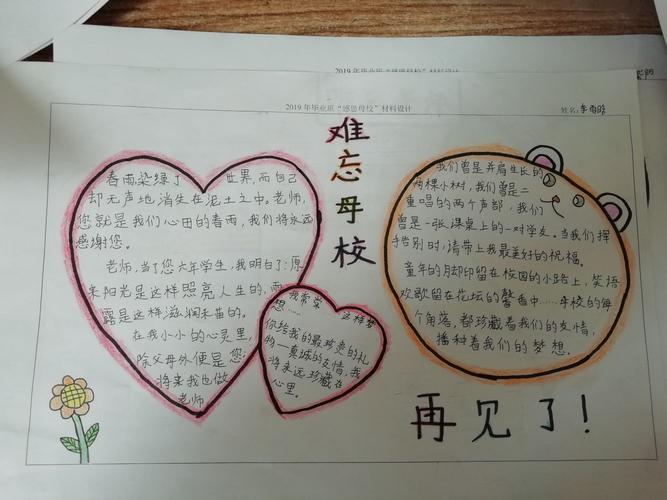 2019年毕业班“感恩母校”材料设计
2019年毕业班“感恩母校”材料设计
姓名:
难忘母校
春雨染绿了 世界,而自己
却无声地消失在泥土之中。老师,
您就是我们心田的春雨,我们将永远
感谢您。
老师,当了您六年学生,我明白了:原
来阳光是这样照亮人生的,雨
露是这样滋润禾苗的。
在我小小的心灵里,
除父母外便是您
将来我也做
老师
我常常 这样梦
想……
你给我的最珍贵的礼
物—真诚的友情,我
将永远珍藏在
心里。
我们曾是并肩生长的
两棵小树,我们曾是二
重唱的两个声部,我们
曾是一张课桌上的一对学友。当我们挥
手告别时,请带上我最美好的祝福。
童年的脚印留在校园的小路上,笑语
欢歌留在花坛的馨香中……母校的每
个角落,都珍藏着我们的友情,
播种着我们的梦想。
再见了!